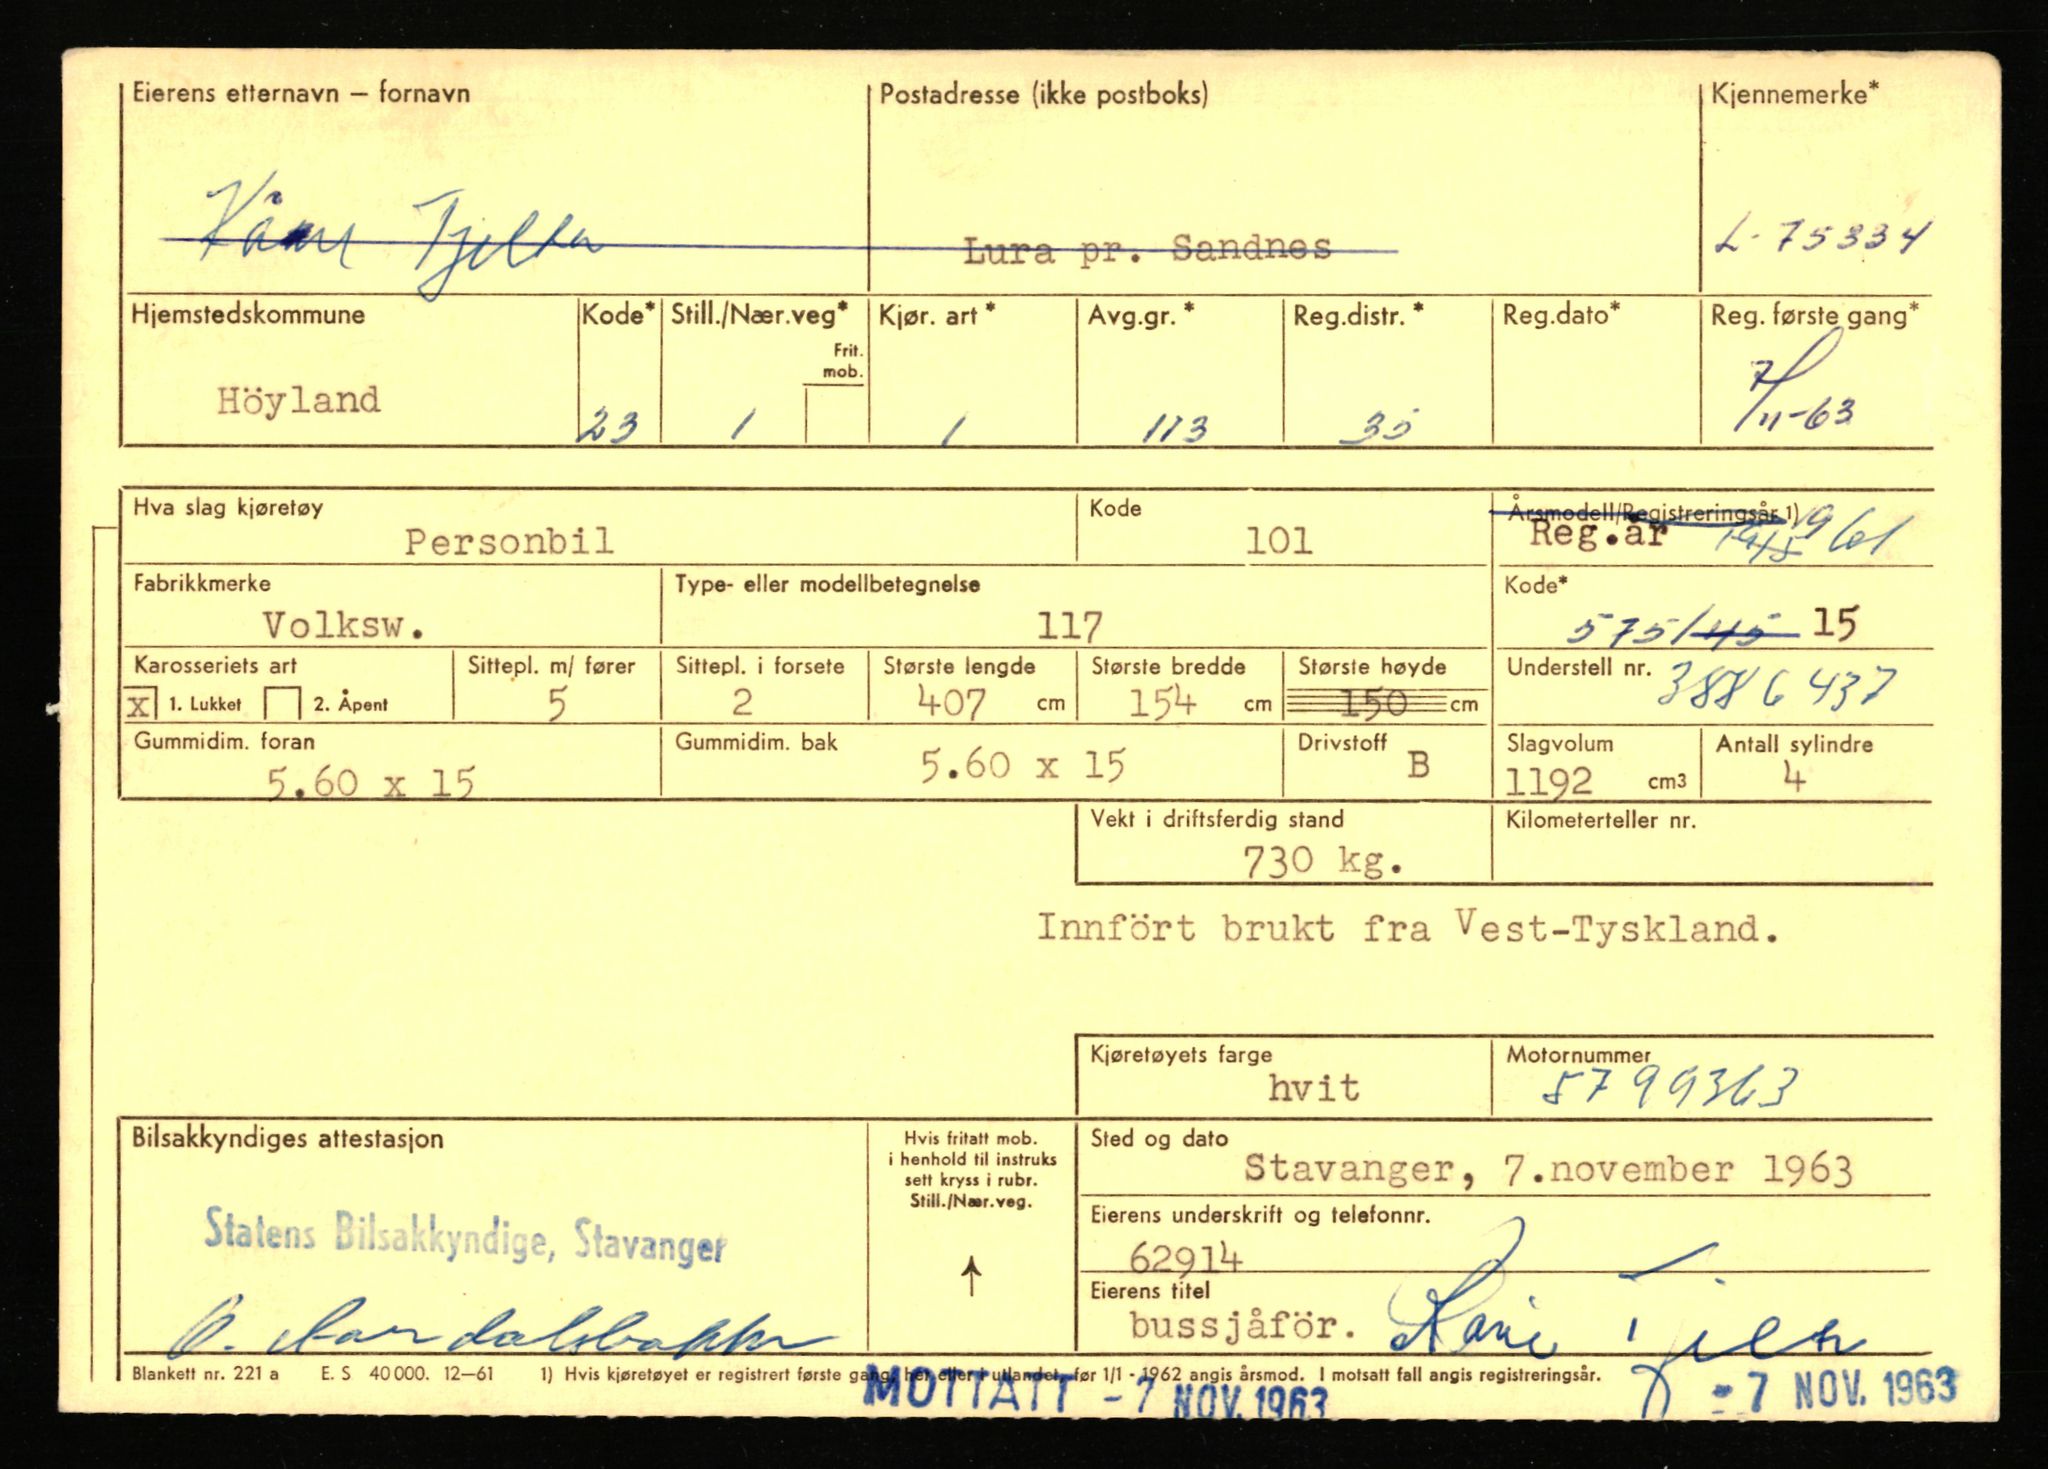 Eierens etternavn – fornavn Postadresse (ikke postboks) Kjennemerke*
Kåre Tjelta Lura pr. Sandnes L-75334
Hjemstedskommune Kode* Still./Nær.veg* Kjør. art* Avg.gr.* Reg.distr.* Reg.dato* Reg. første gang*
Frit.
mob.
Höyland 23 1 1 113 35 7/11-63
Hva slag kjøretøy Kode Årsmodell/Registreringsår 1)
Personbil 101 Reg.år 1961
Fabrikkmerke Type- eller modellbetegnelse Kode*
Volksw. 117 575/45 15
Karosseriets art Sittepl. m/ fører Sittepl. i forsete Største lengde Største bredde Største høyde Understell nr.
x 1. Lukket 2. Åpent 5 2 407 cm 154 cm 150 cm 3886437
Gummidim. foran Gummidim. bak Drivstoff Slagvolum Antall sylindre
5.60 x 15 5.60 x 15 B 1192 cm3 4
Vekt i driftsferdig stand Kilometerteller nr.
730 kg.
Innfört brukt fra Vest-Tyskland.
Kjøretøyets farge Motornummer
hvit 5799363
Bilsakkyndiges attestasjon
Statens Bilsakkyndige, Stavanger
Hvis fritatt mob.
i henhold til instruks
sett kryss i rubr.
Still./Nær.veg.
Sted og dato
Stavanger, 7.november 1963
Eierens underskrift og telefonnr.
62914
Eierens titel
bussjåför. Kåre Tjelta
Blankett nr. 221 a E. S 40 000. 12–61 1) Hvis kjøretøyet er registrert første gang, her eller i utlandet, før 1/1 - 1962 angis årsmod. I motsatt fall angis registreringsår.
MOTTATT - 7 NOV. 1963 - 7 NOV. 1963